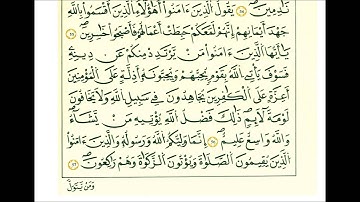 نَٰدِمِينَ يَقُولُ الذِينَ ءَامَنُوٓاْ أَهَٰٓؤُلَآءِ الذِينَ أَقْسَمُواْ بِاللَّهِ
جَهْدَ أَيْمَٰنِهِمُۥٓ إِنَّهُمْ لَمَعَكُمْ حَبِطَتَ اَعْمَٰلُهُمْ فَأَصْبَحُواْ خَٰسِرِينَ
يَٰٓأَيُّهَا الذِينَ ءَامَنُواْ مَنْ يَّرْتَدِدْ مِنكُمْ عَن دِينِهِۦ
فَسَوْفَ يَاتِے اللَّهُ بِقَوْمٖ يُحِبُّهُمْ وَيُحِبُّونَهُۥٓ أَذِلَّةٍ عَلَى الْمُؤْمِنِينَ
أَعِزَّةٍ عَلَى الْكَٰفِرِينَ يُجَٰهِدُونَ فِے سَبِيلِ اللَّهِ وَلَا يَخَافُونَ
لَوْمَةَ لَآئِمٖ ذَٰلِكَ فَضْلُ اللَّهِ يُوتِيهِ مَنْ يَّشَآءُ
وَاللَّهُ وَٰسِعٌ عَلِيمٌ إِنَّمَا وَلِيُّكُمُ اللَّهُ وَرَسُولُهُۥ وَالذِينَ ءَامَنُواْ
الذِينَ يُقِيمُونَ الصَّلَوٰةَ وَيُوتُونَ الزَّكَوٰةَ وَهُمْ رَٰكِعُونَ
وَمَنْ يَّتَوَلَّ